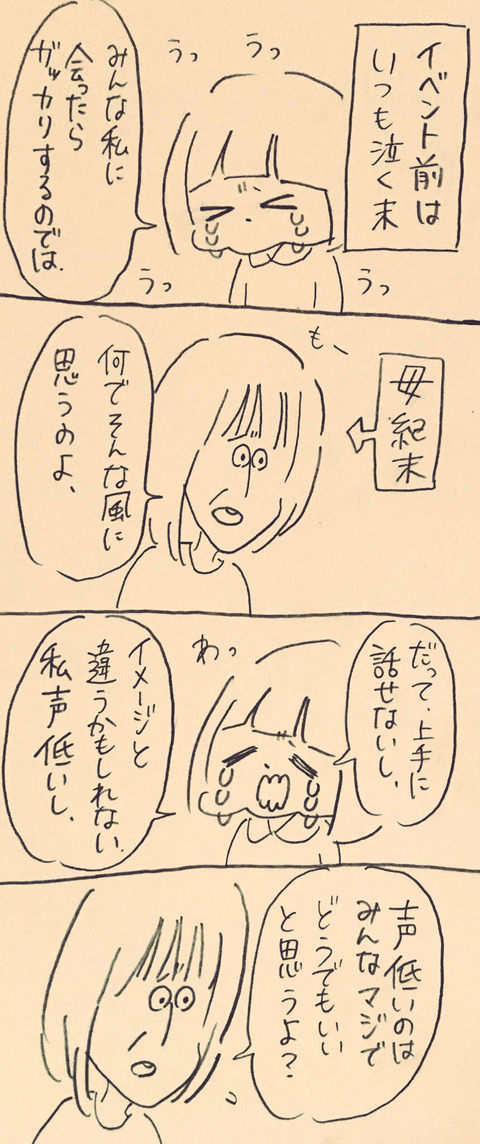 イベント前は
いつも泣く末
うっ
うっ
みんな私に
会ったら
ガッカリするのでは、
うっ
うっ
母紀末
も、
何でそんな風に
思うのよ、
だって、上手に
話せないし、
わっ
イメージと
違うかもしれない
私声低いし、
声低いのは
みんなマジで
どうでもいい
と思うよ？